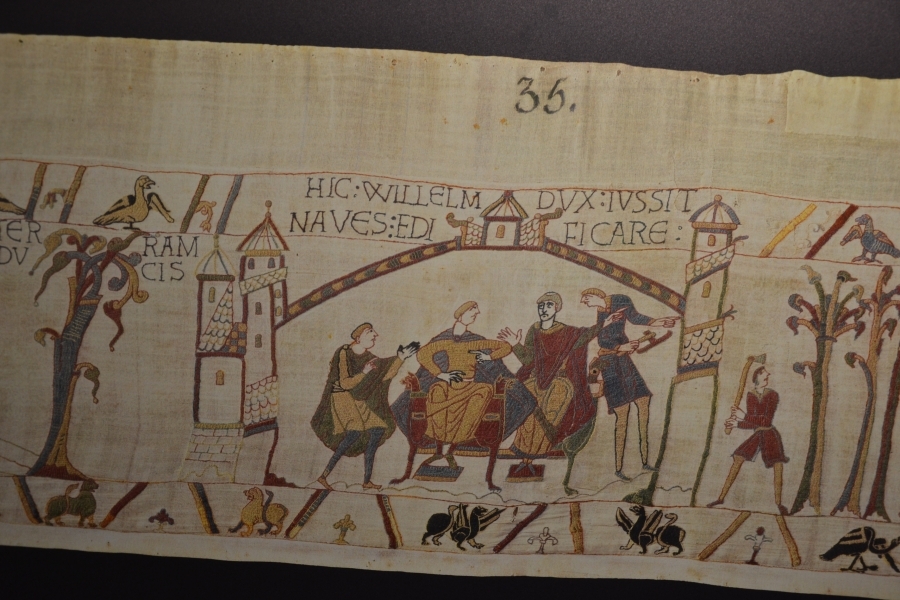 35.
ER
DV
RAM
CIS
HIC:WILLELM DVX:IVSSIT
NAVES:EDI FICARE: